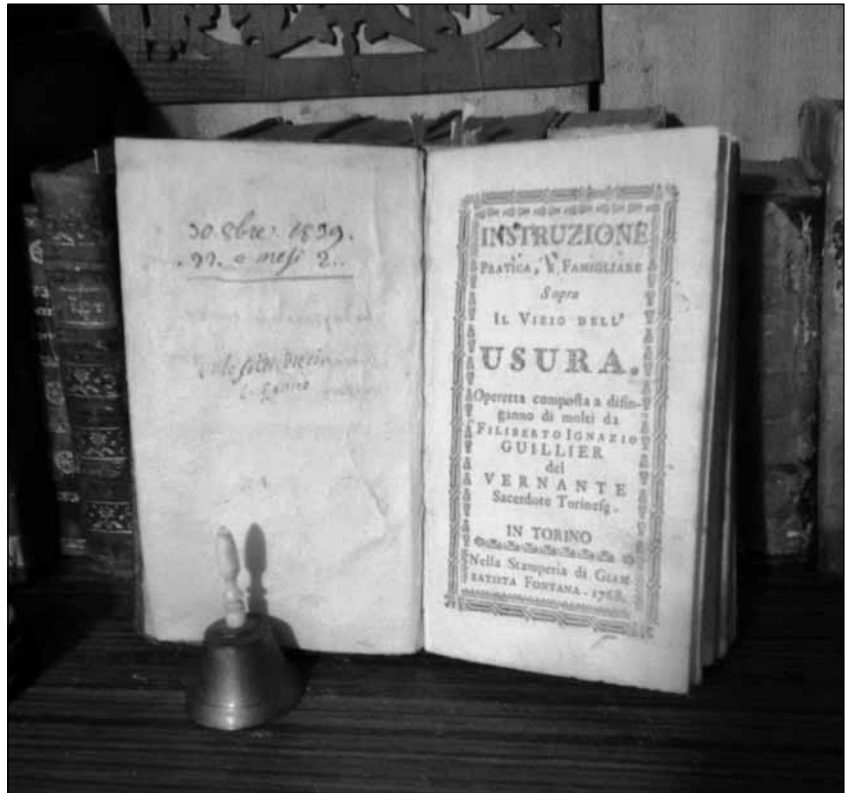 30. 8bre. 1839.
. 22. a mesi 2..
INSTRUZIONE
PRATICA, E FAMIGLIARE
Sopra
IL VIZIO DELL'
USURA.
Operetta composta a disin-
ganno di molti da
FILIBERTO IGNAZIO
GUILLIER
del
VERNANTE
Sacerdote Torinese.
IN TORINO
Nella Stamperia di GIAM-
BATISTA FONTANA. 1768.